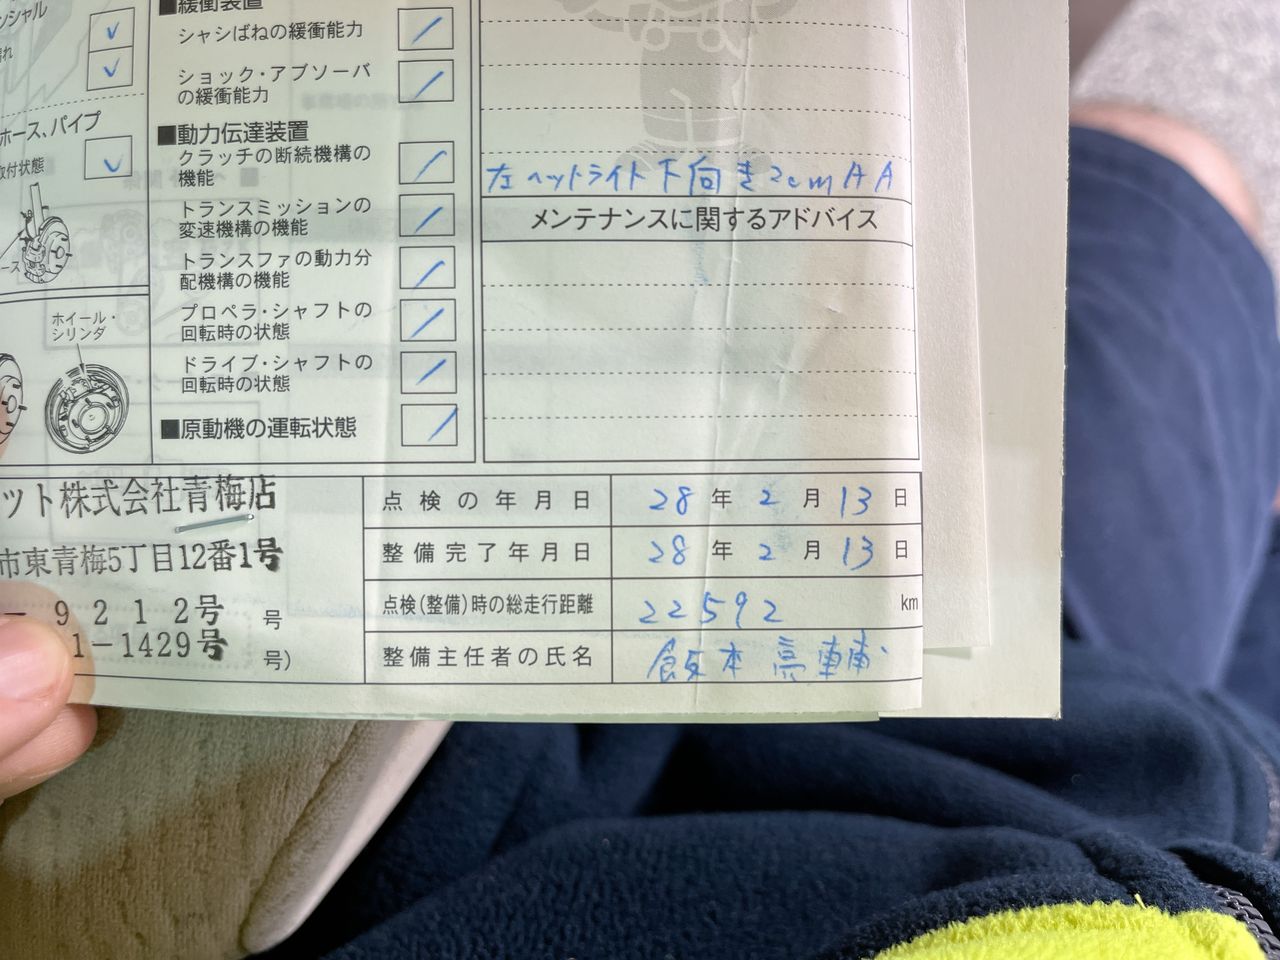 ンシャル
れ
ホース、パイプ
取付状態
ース
ホイール・
シリンダ
■緩衝装置
シャシばねの緩衝能力
ショック・アブソーバ
の緩衝能力
■動力伝達装置
クラッチの断続機構の
機能
トランスミッションの
変速機構の機能
トランスファの動力分
配機構の機能
プロペラ・シャフトの
回転時の状態
ドライブ・シャフトの
回転時の状態
■原動機の運転状態
左ヘットライト下向き2cmAA
メンテナンスに関するアドバイス
ット株式会社青梅店
市東青梅5丁目12番1号
9212号 号
1-1429号 号)
点検の年月日 28年2月13日
整備完了年月日 28年2月13日
点検(整備)時の総走行距離 22592 km
整備主任者の氏名 飯本